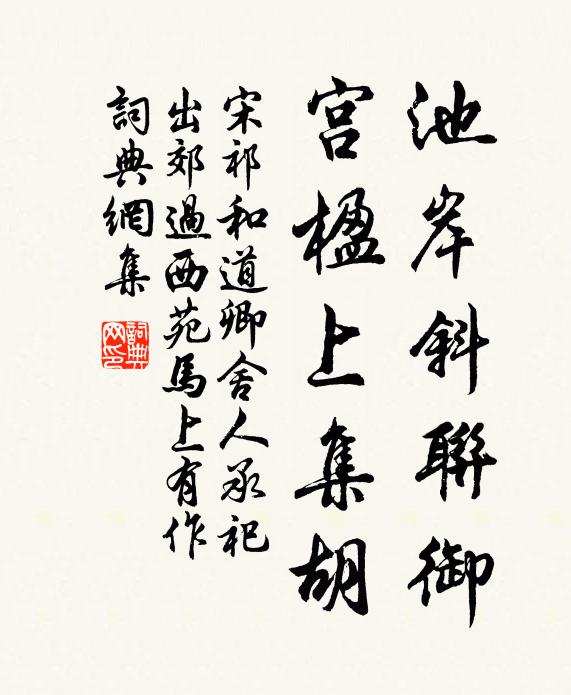 池岸斜聯御
宮楹上集胡
宋祁和道卿舍人承祀
出郊過西苑馬上有作
詞典網集
詞典网印